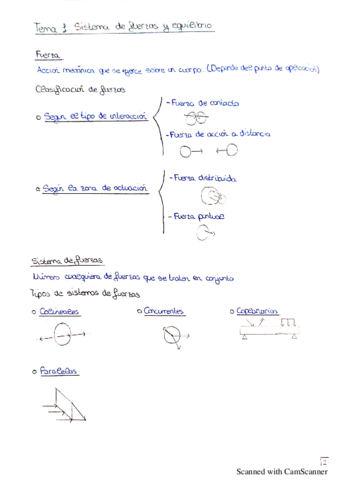 Tema 1 Sistema de fuerzas y equilibrio
Fuerza
Acción mecánica que se ejerce sobre un cuerpo. (Depende del punto de aplicación)
Clasificación de fuerzas
o Según el tipo de interacción
- Fuerza de contacto
- Fuerza de acción a distancia
o Según la zona de actuación
- Fuerza distribuida
- Fuerza puntual
Sistema de fuerzas
Número cualquiera de fuerzas que se tratan en conjunto
Tipos de sistemas de fuerzas
o Colineales
o Concurrentes
o Coplanarias
o Paralelas
Scanned with CamScanner